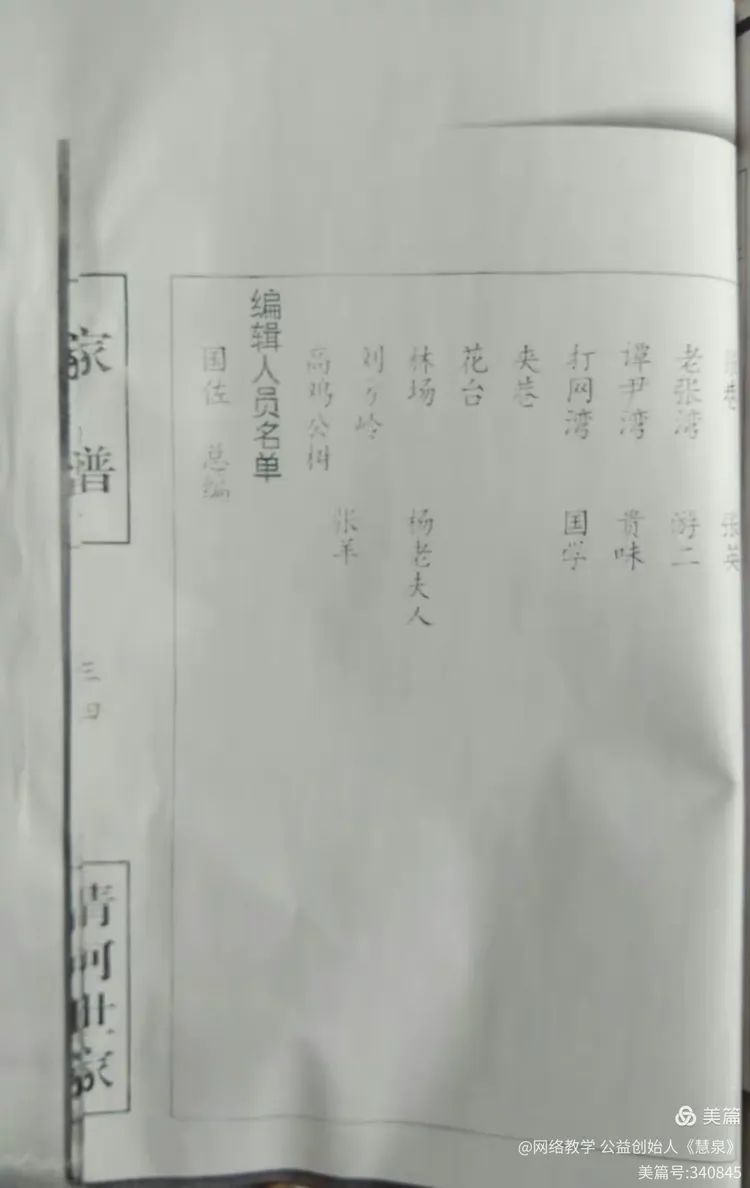 张英
老张湾 游二
谭尹湾 贵味
打网湾 国学
夹巷
花台
林场 杨老夫人
刘家岭
张羊
编辑人员名单
国佐 总编
家谱
三四
清河世家
美篇
@网络教学 公益创始人《慧泉》
美篇号:340845